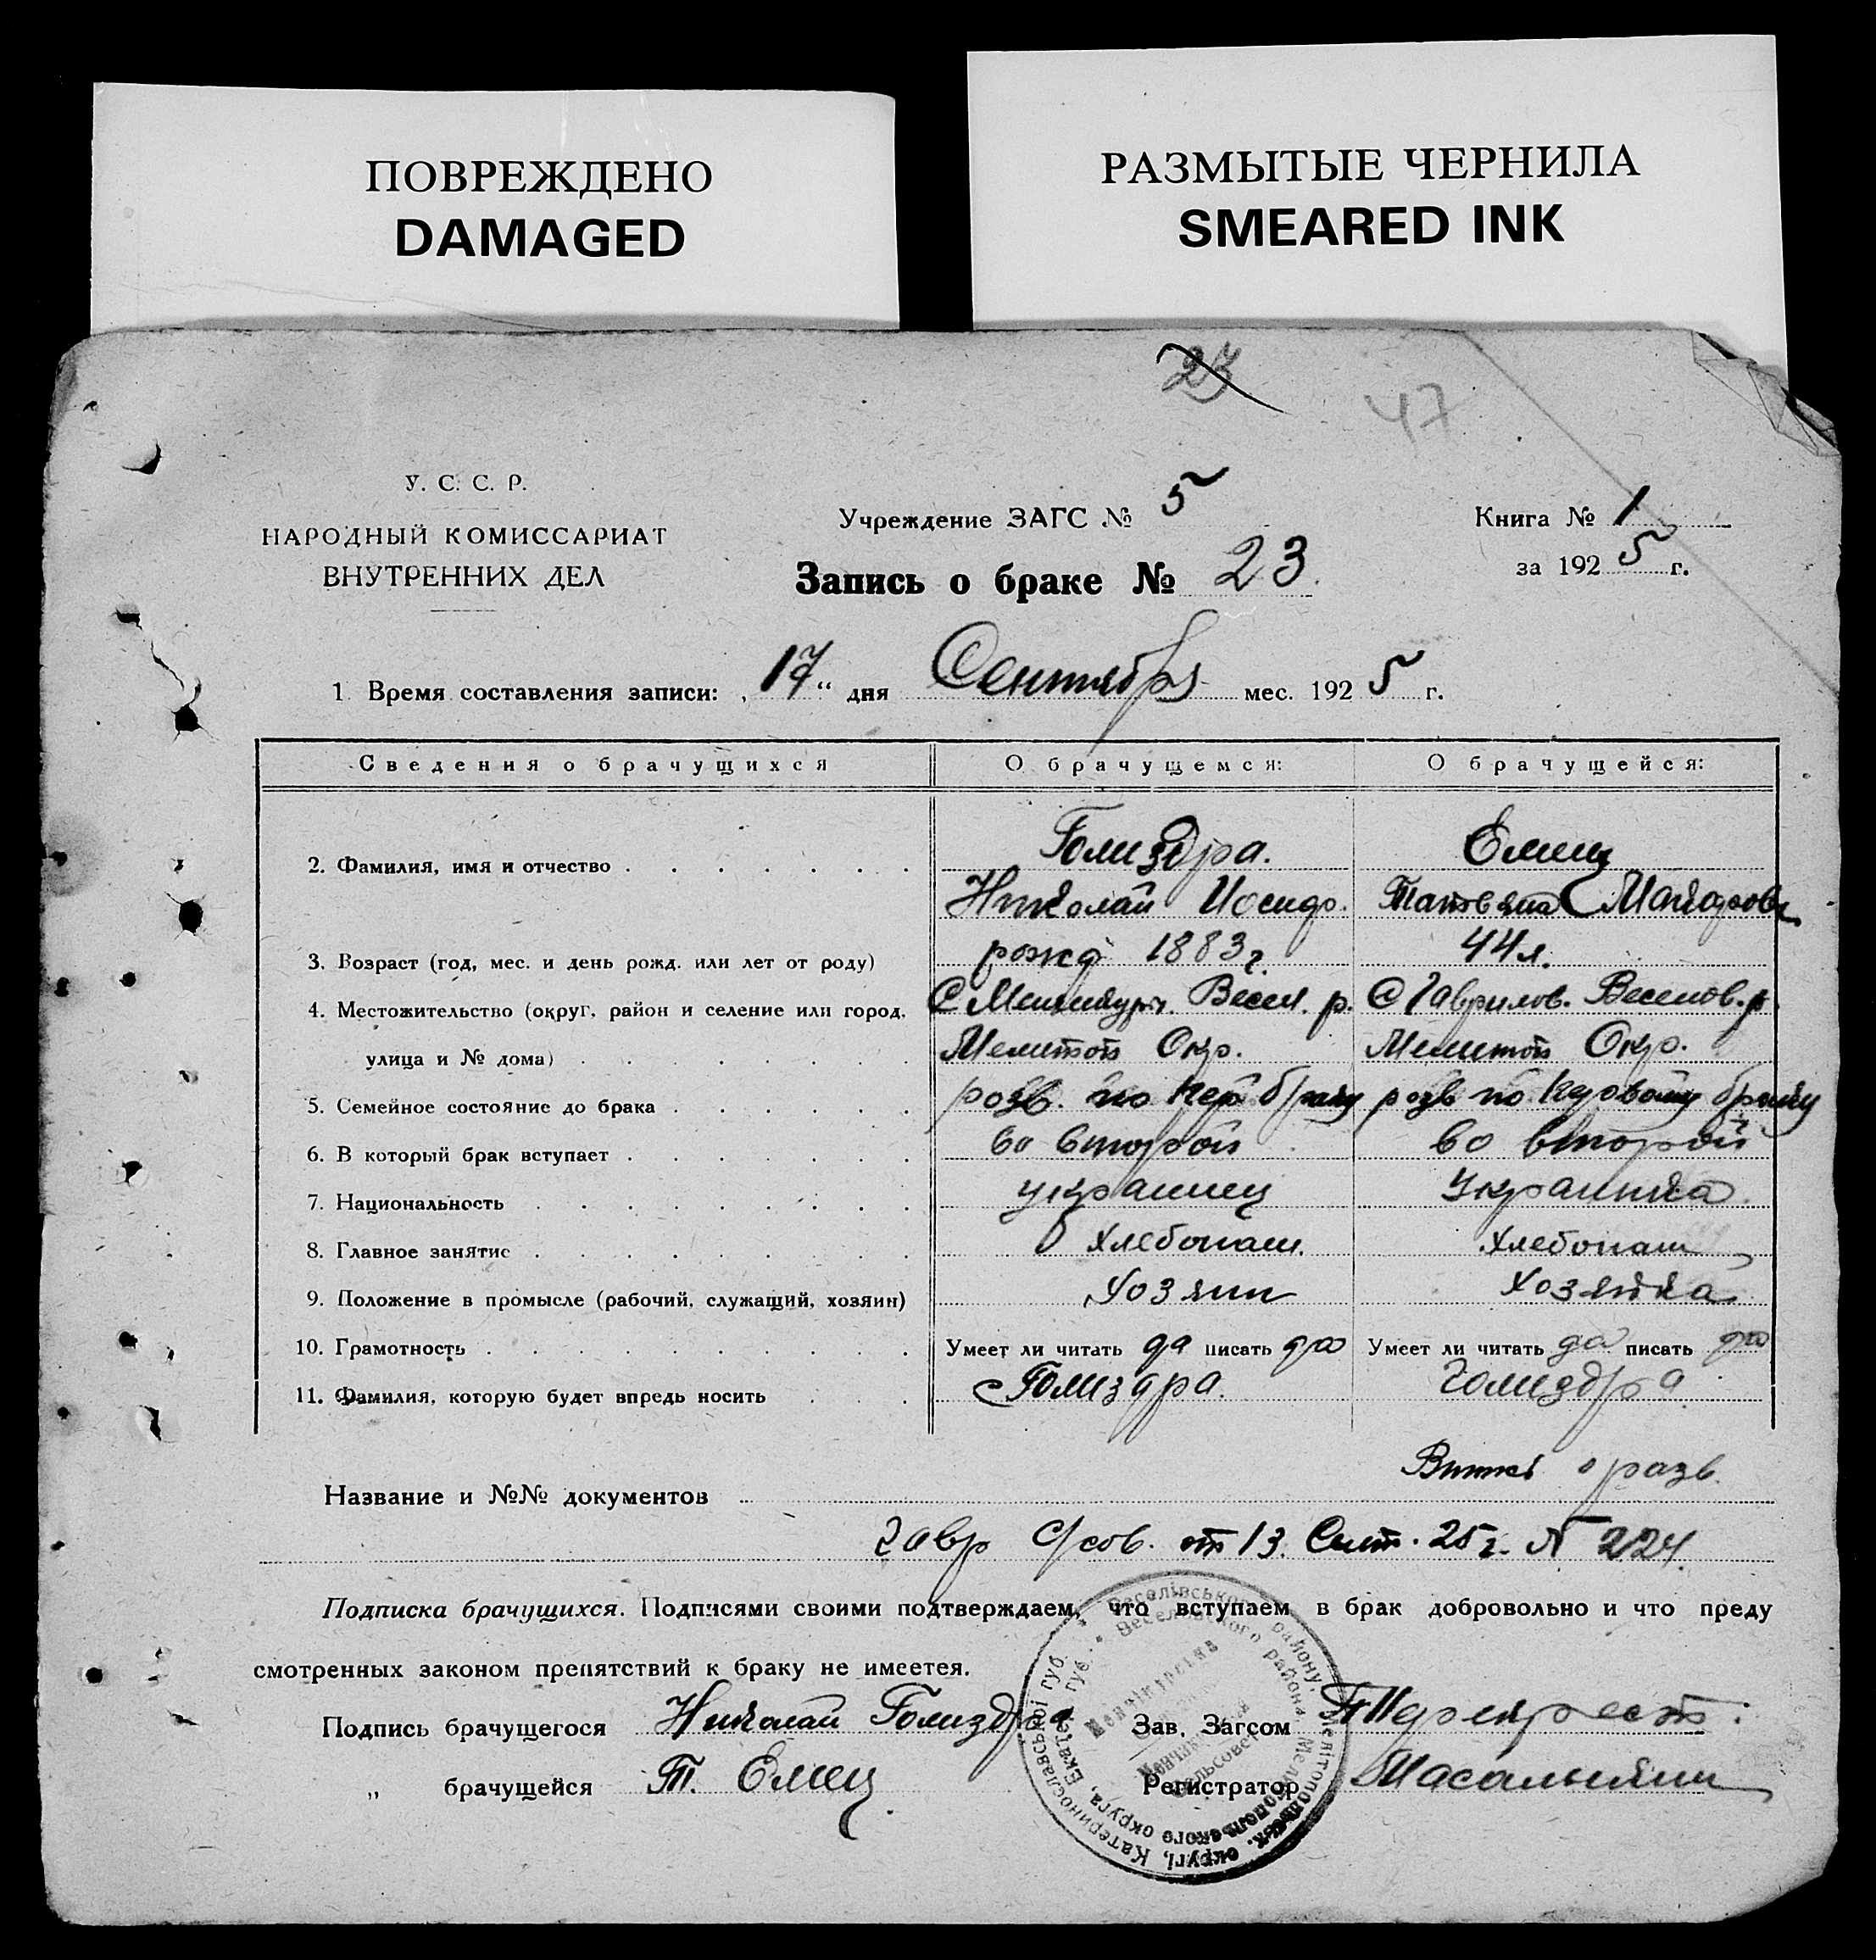 ПОВРЕЖДЕНО
DAMAGED
РАЗМЫТЫЕ ЧЕРНИЛА
SMEARED INK
23
47
У. С. С. Р.
НАРОДНЫЙ КОМИССАРИАТ
ВНУТРЕННИХ ДЕЛ
Учреждение ЗАГС № 5
Запись о браке № 23.
Книга № 1
за 1925 г.
1 Время составления записи: „17“ дня Сентября мес. 1925 г.
Сведения о брачущихся О брачущемся: О брачущейся:
2. Фамилия, имя и отчество Голиздра. Емец
Николай Иосифо. Татьяна
3. Возраст (год, мес. и день рожд. или лет от роду) рожд 1883 г. 44 л.
4. Местожительство (округ, район и селение или город, С Весел. р. С Гаврилов. Веселов. р.
улица и № дома) Мелитоп Окр. Мелитоп Окр.
5. Семейное состояние до брака розв. по пер браку розв по первому браку
6. В который брак вступает во второй во второй
7. Национальность украинец Украинка
8. Главное занятие хлебопаш. хлебопаш
9. Положение в промысле (рабочий, служащий, хозяин) Хозяин Хозяйка
10. Грамотность Умеет ли читать да писать да Умеет ли читать да писать да
11. Фамилия, которую будет впредь носить Голиздра. Голиздра
Название и №№ документов о разв.
Гавр С/сов. от 13. Сент. 25 г. № 224.
Подписка брачущихся. Подписями своими подтверждаем, что вступаем в брак добровольно и что преду
смотренных законом препятствий к браку не имеется.
Подпись брачущегося Николай Голиздра Зав. Загсом
„ брачущейся Т. Емец. Регистратор
Веселівського району, Мелітопольськ. округі, Катеринославської губ.
Веселовского района Мелитопольского округа, Екатер. губ.